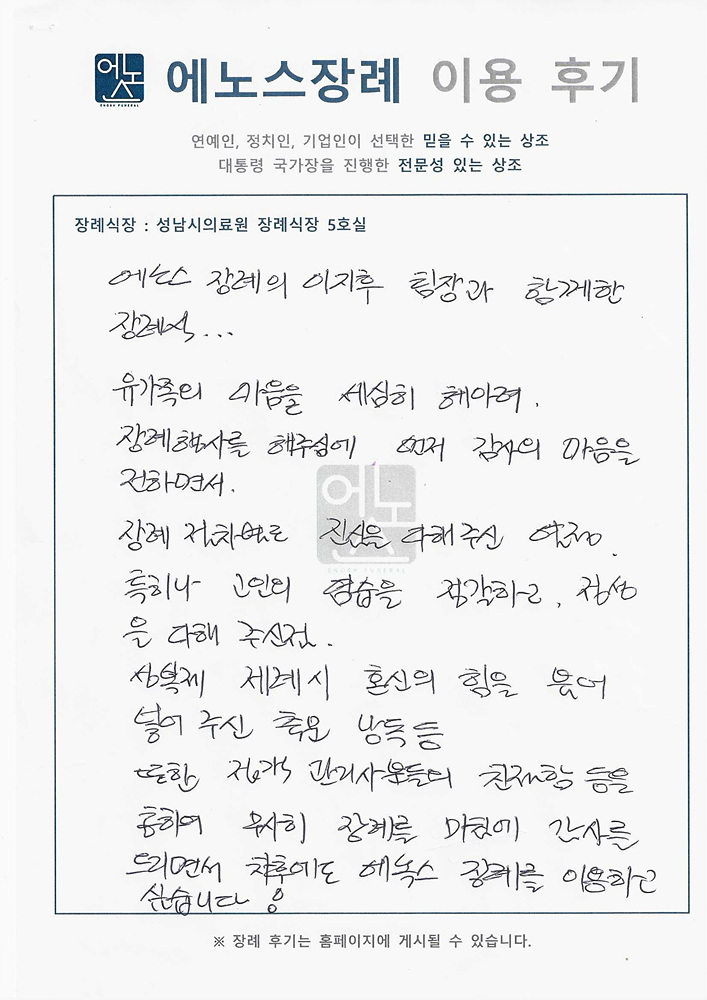 에노스
ENOSH FUNERAL
에노스장례 이용 후기
연예인, 정치인, 기업인이 선택한 믿을 수 있는 상조
대통령 국가장을 진행한 전문성 있는 상조
장례식장 : 성남시의료원 장례식장 5호실
에노스 장례의 이지후 팀장과 함께한
장례식...
유가족의 마음을 세심히 헤아려.
장례행사를 해주심에 먼저 감사의 마음을
전하면서.
장례 절차별로 진심을 다해 주신
특히나 고인의 염습을 정갈하고, 정성
을 다해 주신점.
상복제 제례시 혼신의 힘을 불어
넣어 주신 축문 낭독 등
또한 관리사분들의 친절함 등을
통하여 무사히 장례를 마침에 감사를
드리면서 차후에도 에녹스 장례를 이용하고
싶습니다
에노스
ENOSH FUNERAL
※ 장례 후기는 홈페이지에 게시될 수 있습니다.